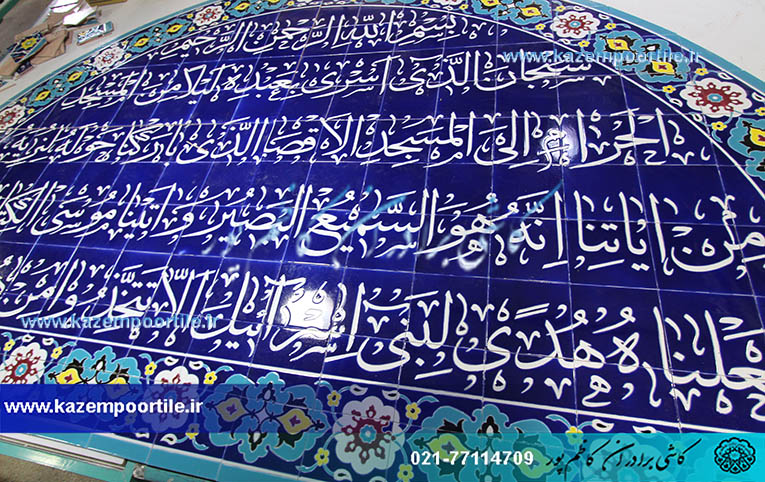 بسم الله الرحمن الرحیم
www.kazempoortile.ir
سبحان الذی اسری بعبده لیلا من المسجد
الحرام الی المسجد الاقصا الذی بارکنا حوله لنریه
من ایاتنا انه هو السمیع البصیر و اتینا موسی الکت
علناه هدی لبنی اسرائیل الا تتخذوا من
www.kazempoortile.ir
www.kazempoortile.ir
021-77114709 کاشی برادران کاظم پور